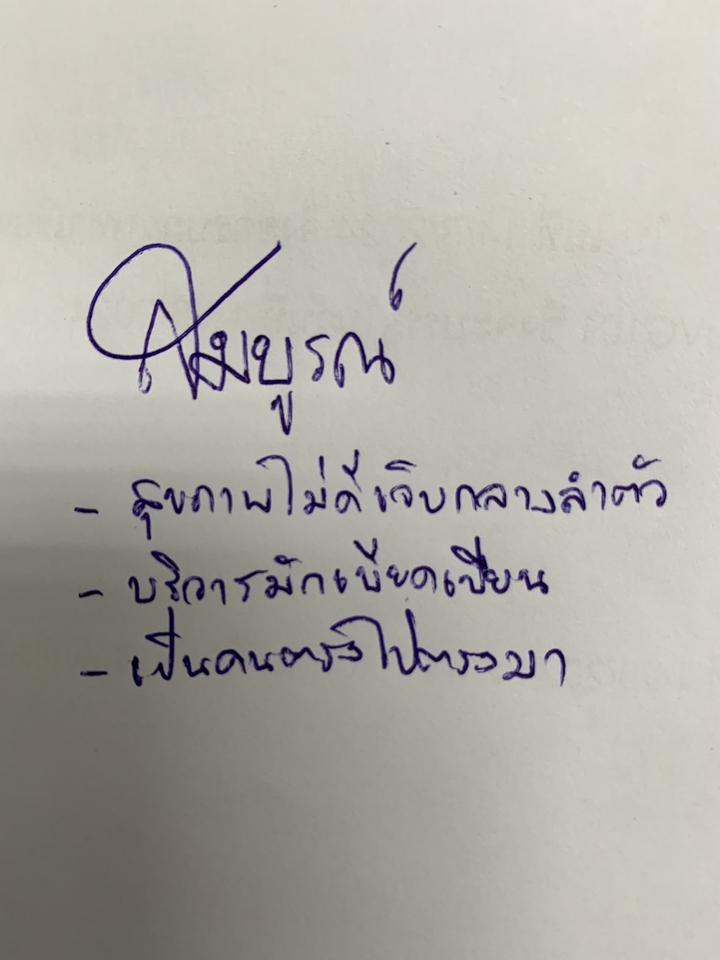 สมบูรณ์
- สุขภาพไม่ดีเจ็บกลางลำตัว
- บริวารมักเบียดเบียน
- เป็นคนตรงไปตรงมา